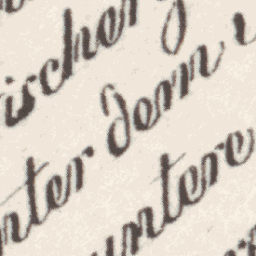 ischen
nter dem
untere